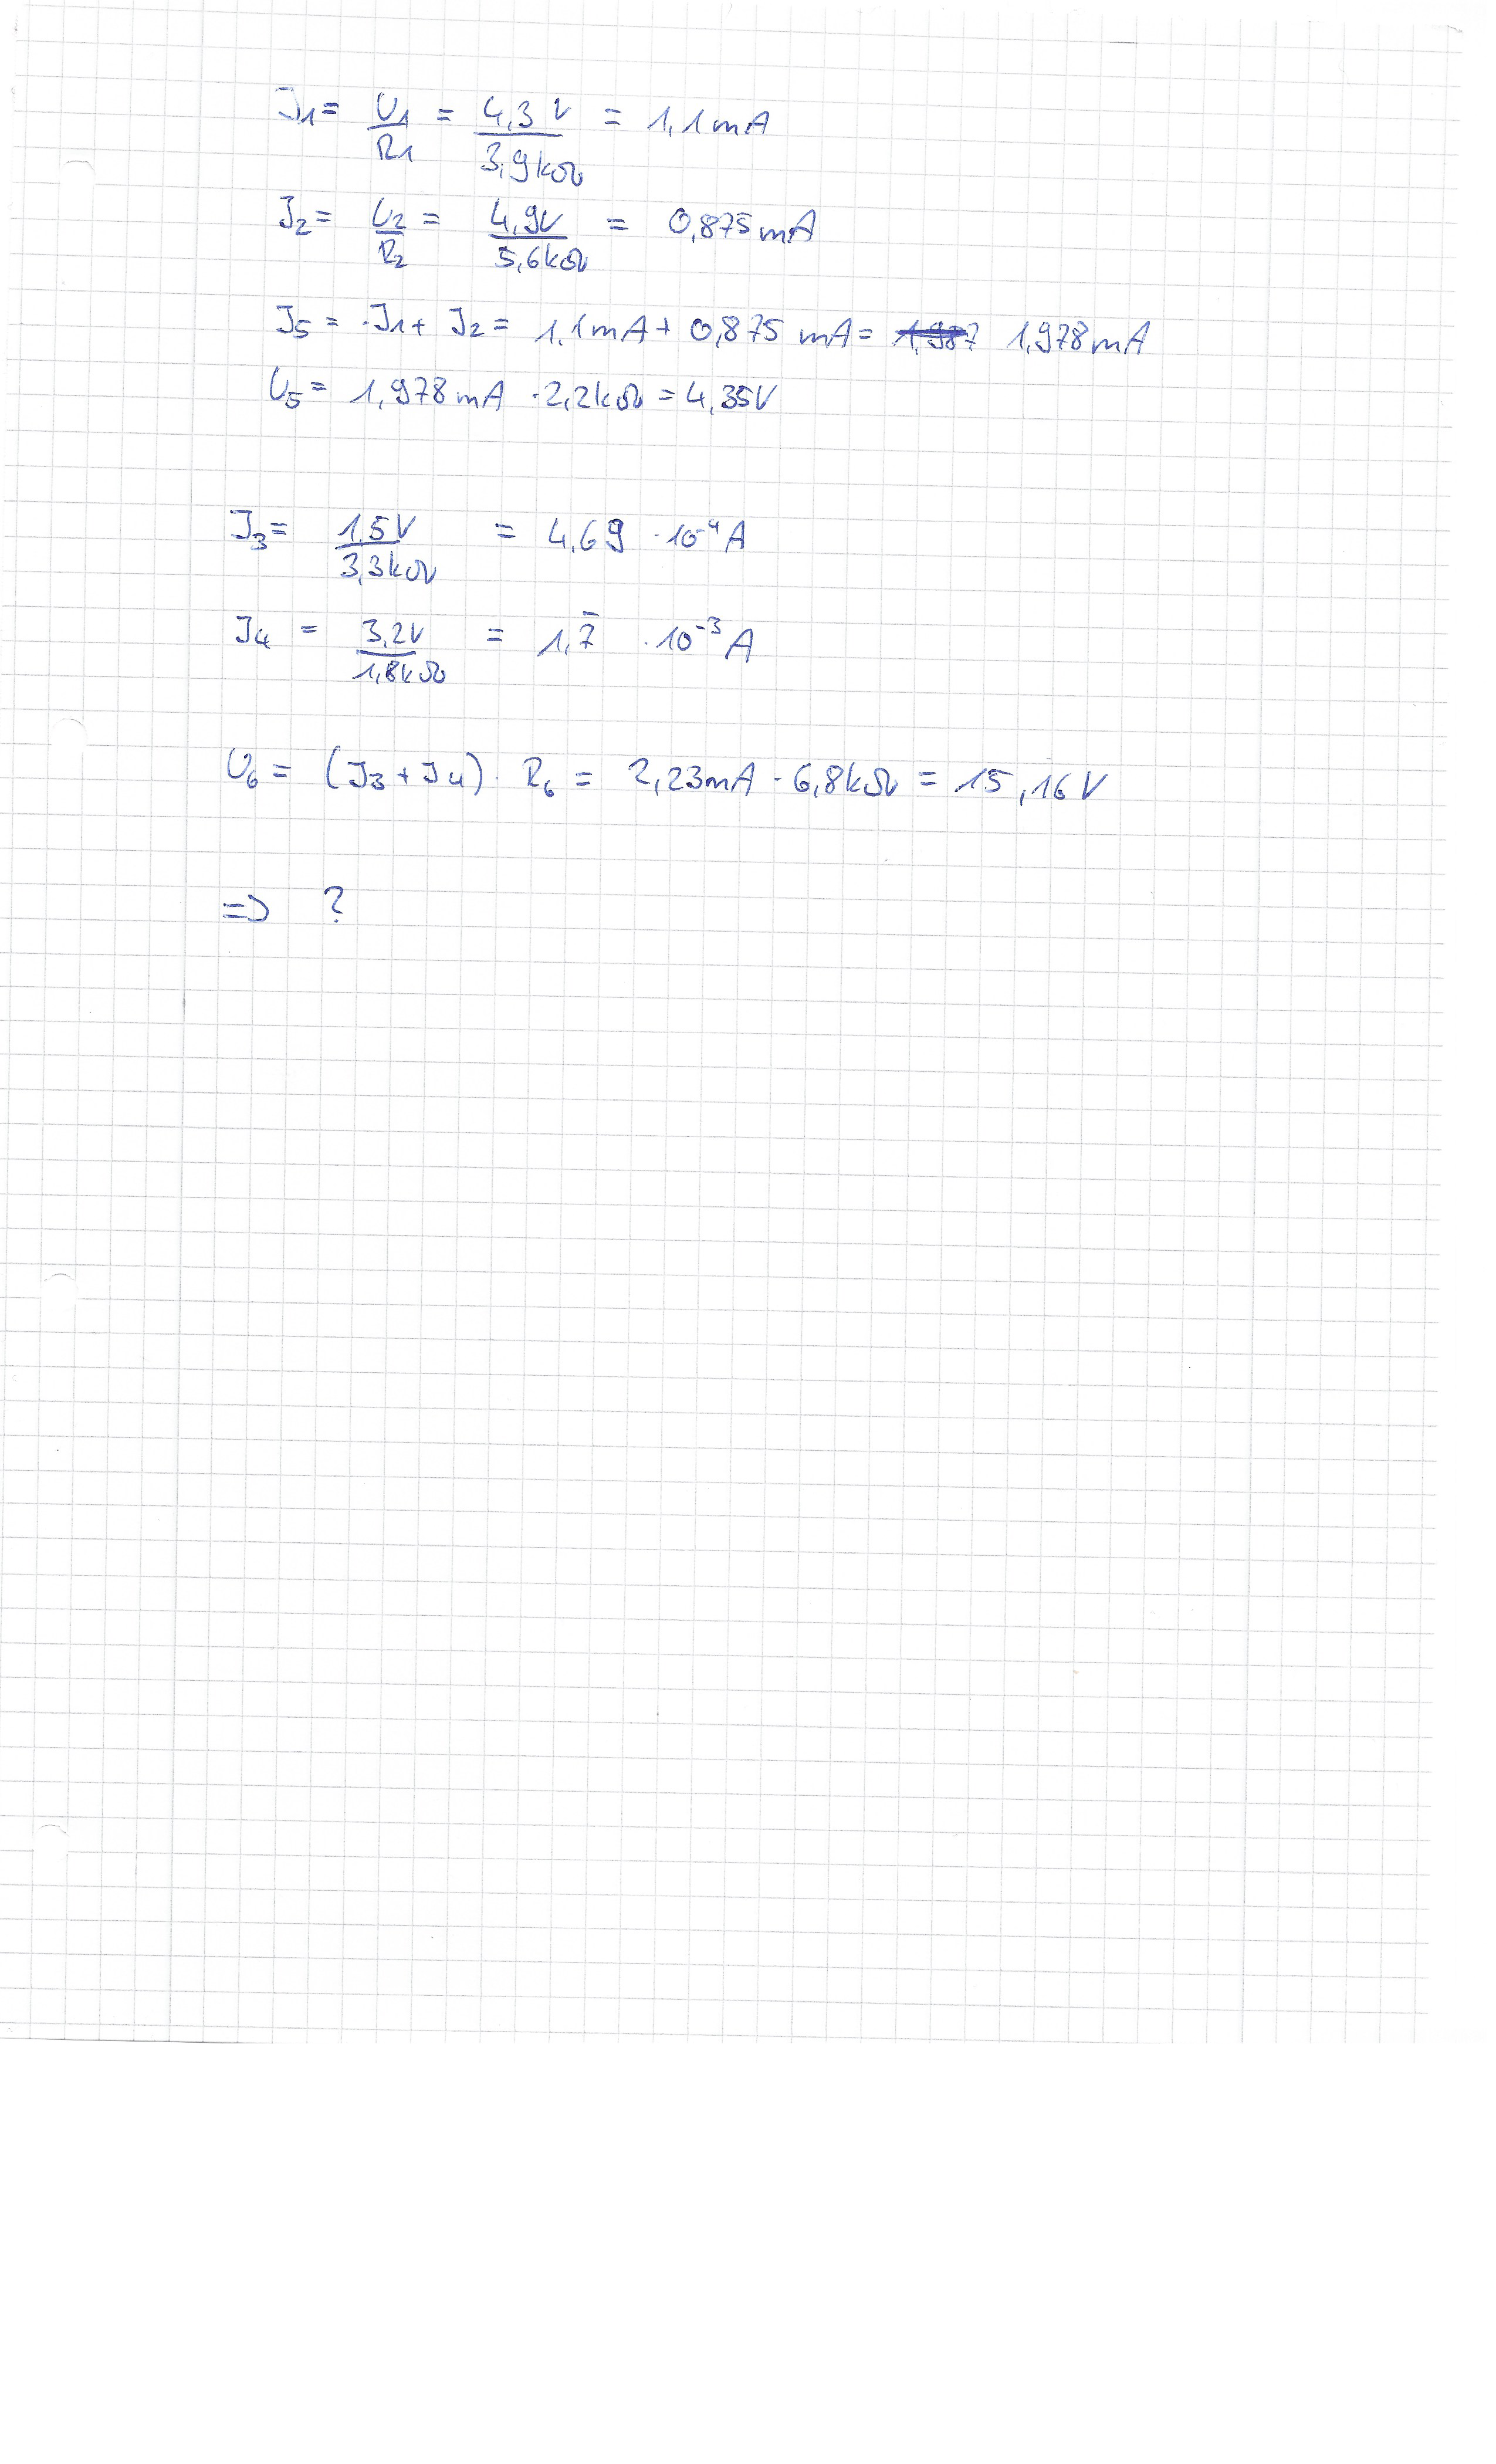 I₁ = U₁/R₁ = 4,3 V/3,9kΩ = 1,1mA
I₂ = U₂/R₂ = 4,9V/5,6kΩ = 0,875mA
I₅ = I₁ + I₂ = 1,1mA + 0,875 mA = 1,987 1,978mA
U₅ = 1,978mA · 2,2kΩ = 4,35V
I₃ = 1,5V/3,3kΩ = 4,69 · 10⁻⁴A
I₄ = 3,2V/1,8kΩ = 1,7̄ · 10⁻³A
U₆ = (I₃ + I₄) · R₆ = 2,23mA · 6,8kΩ = 15,16V
=> ?